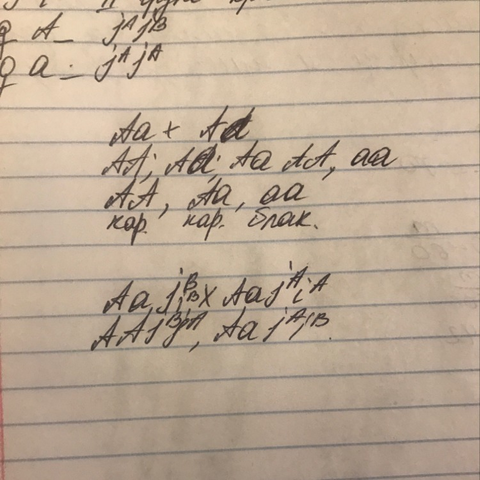 A_ jᴬjᴮ
a_ jᴬjᴬ
Aa + Aa
AA; Aa; Aa AA, aa
AA, Aa, aa
кар. кар.
Aa jᴮjᴮ X Aa jᴬjᴬ
AAjᴮjᴬ, Aa jᴬjᴮ.